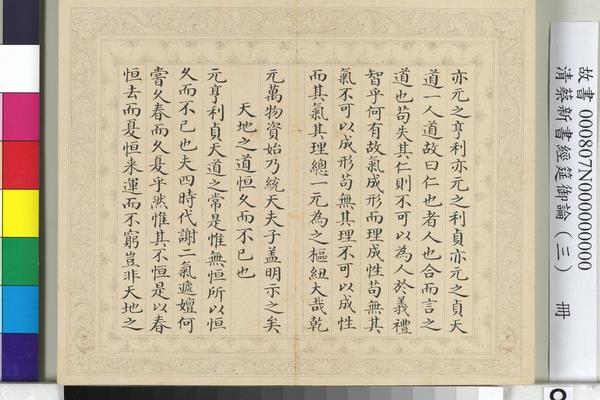 亦元之亨利亦元之利貞亦元之貞天
道一人道故曰仁也者人也合而言之
道也苟失其仁則不可以為人於義禮
智乎何有故氣成形而理成性苟無其
氣不可以成形苟無其理不可以成性
而其氣其理總一元為之樞紐大哉乾
元萬物資始乃統天夫子蓋明示之矣
天地之道恒久而不已也
元亨利貞天道之常是惟無恒所以恒
久而不已也夫四時代謝二氣遞嬗何
嘗久春而久夏乎然惟其不恒是以春
恒去而夏恒來運而不窮豈非天地之
故書 000807N000000000
清蔡新書經筵御論（三） 冊